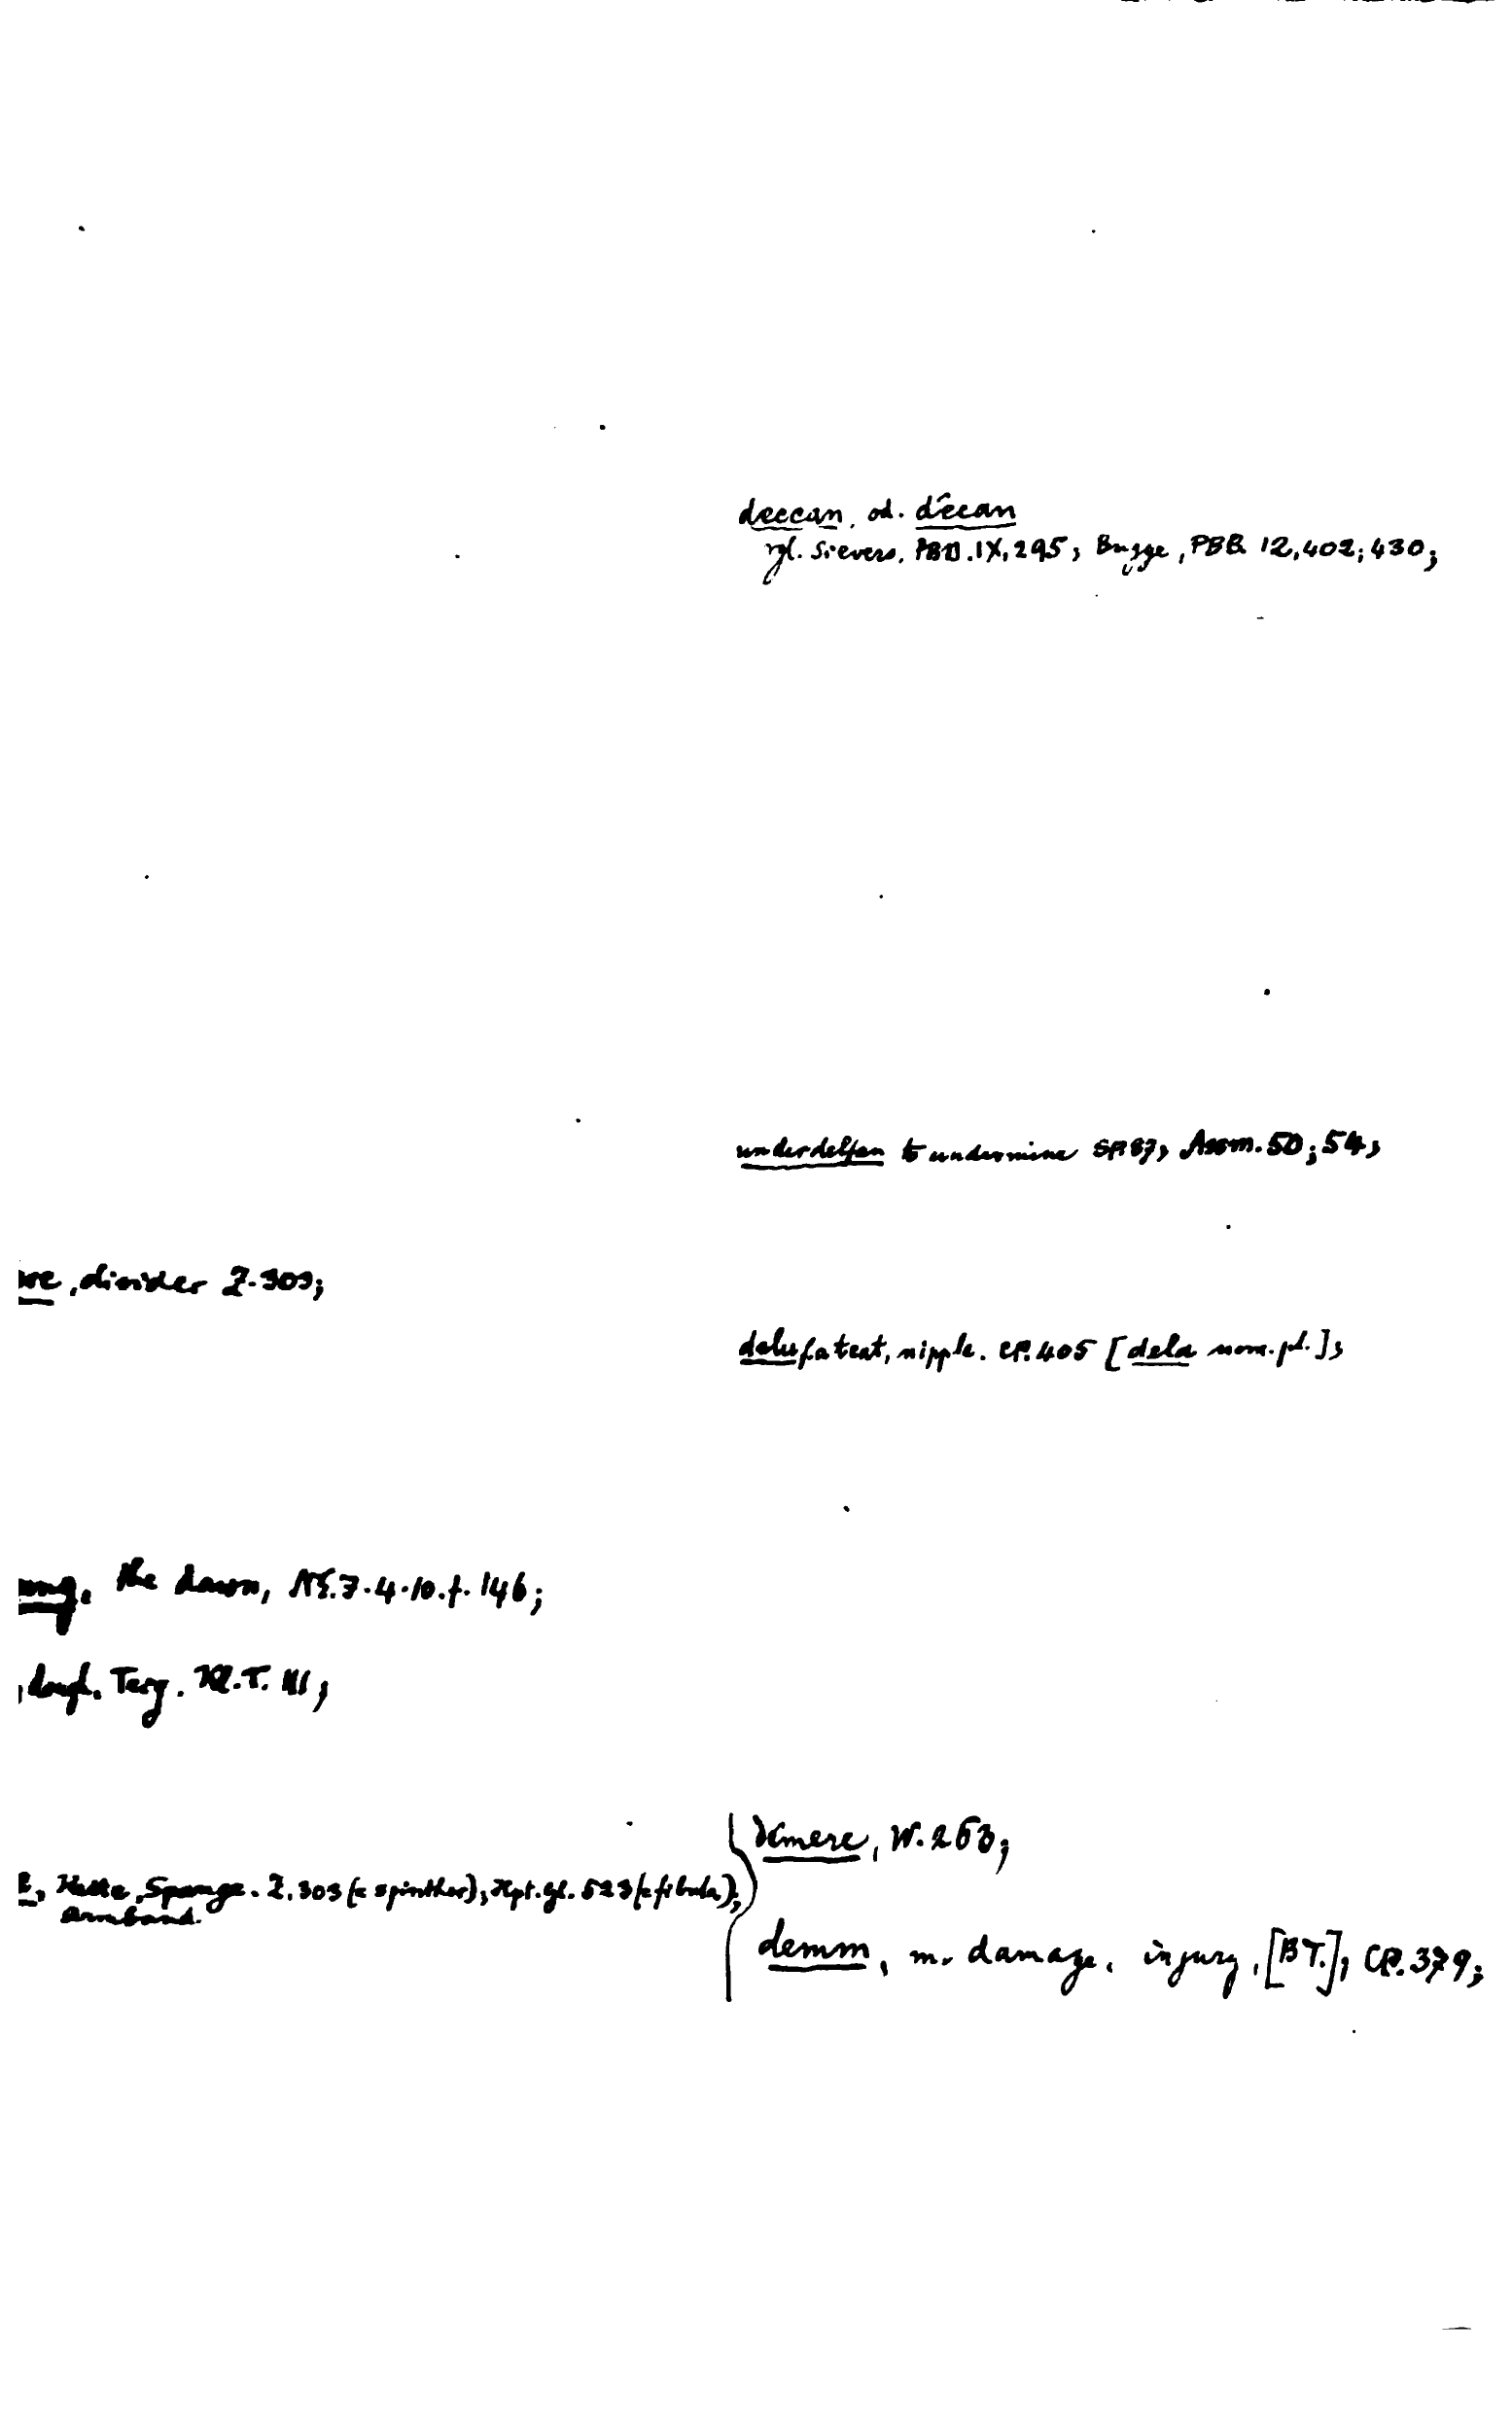 deccan, od. décan
vgl. Sievers, PBB. IX, 295; Bugge, PBB 12, 402; 430;
underdelfan to undermine SA 87, Assm. 50; 54;
we, divider Z. 303;
delu f. a teat, nipple. CP. 405 [dela nom. pl.];
ung, the dawn, 7.4.10. f. 146;
, dough. Terg. Kl. T. III;
démere, W. 263;
Spange. Z. 303 (= spinther), Hpt. gl. 523 (= fibula);
Armband.
demm, m. damage, injury, [BT.], CP. 379;